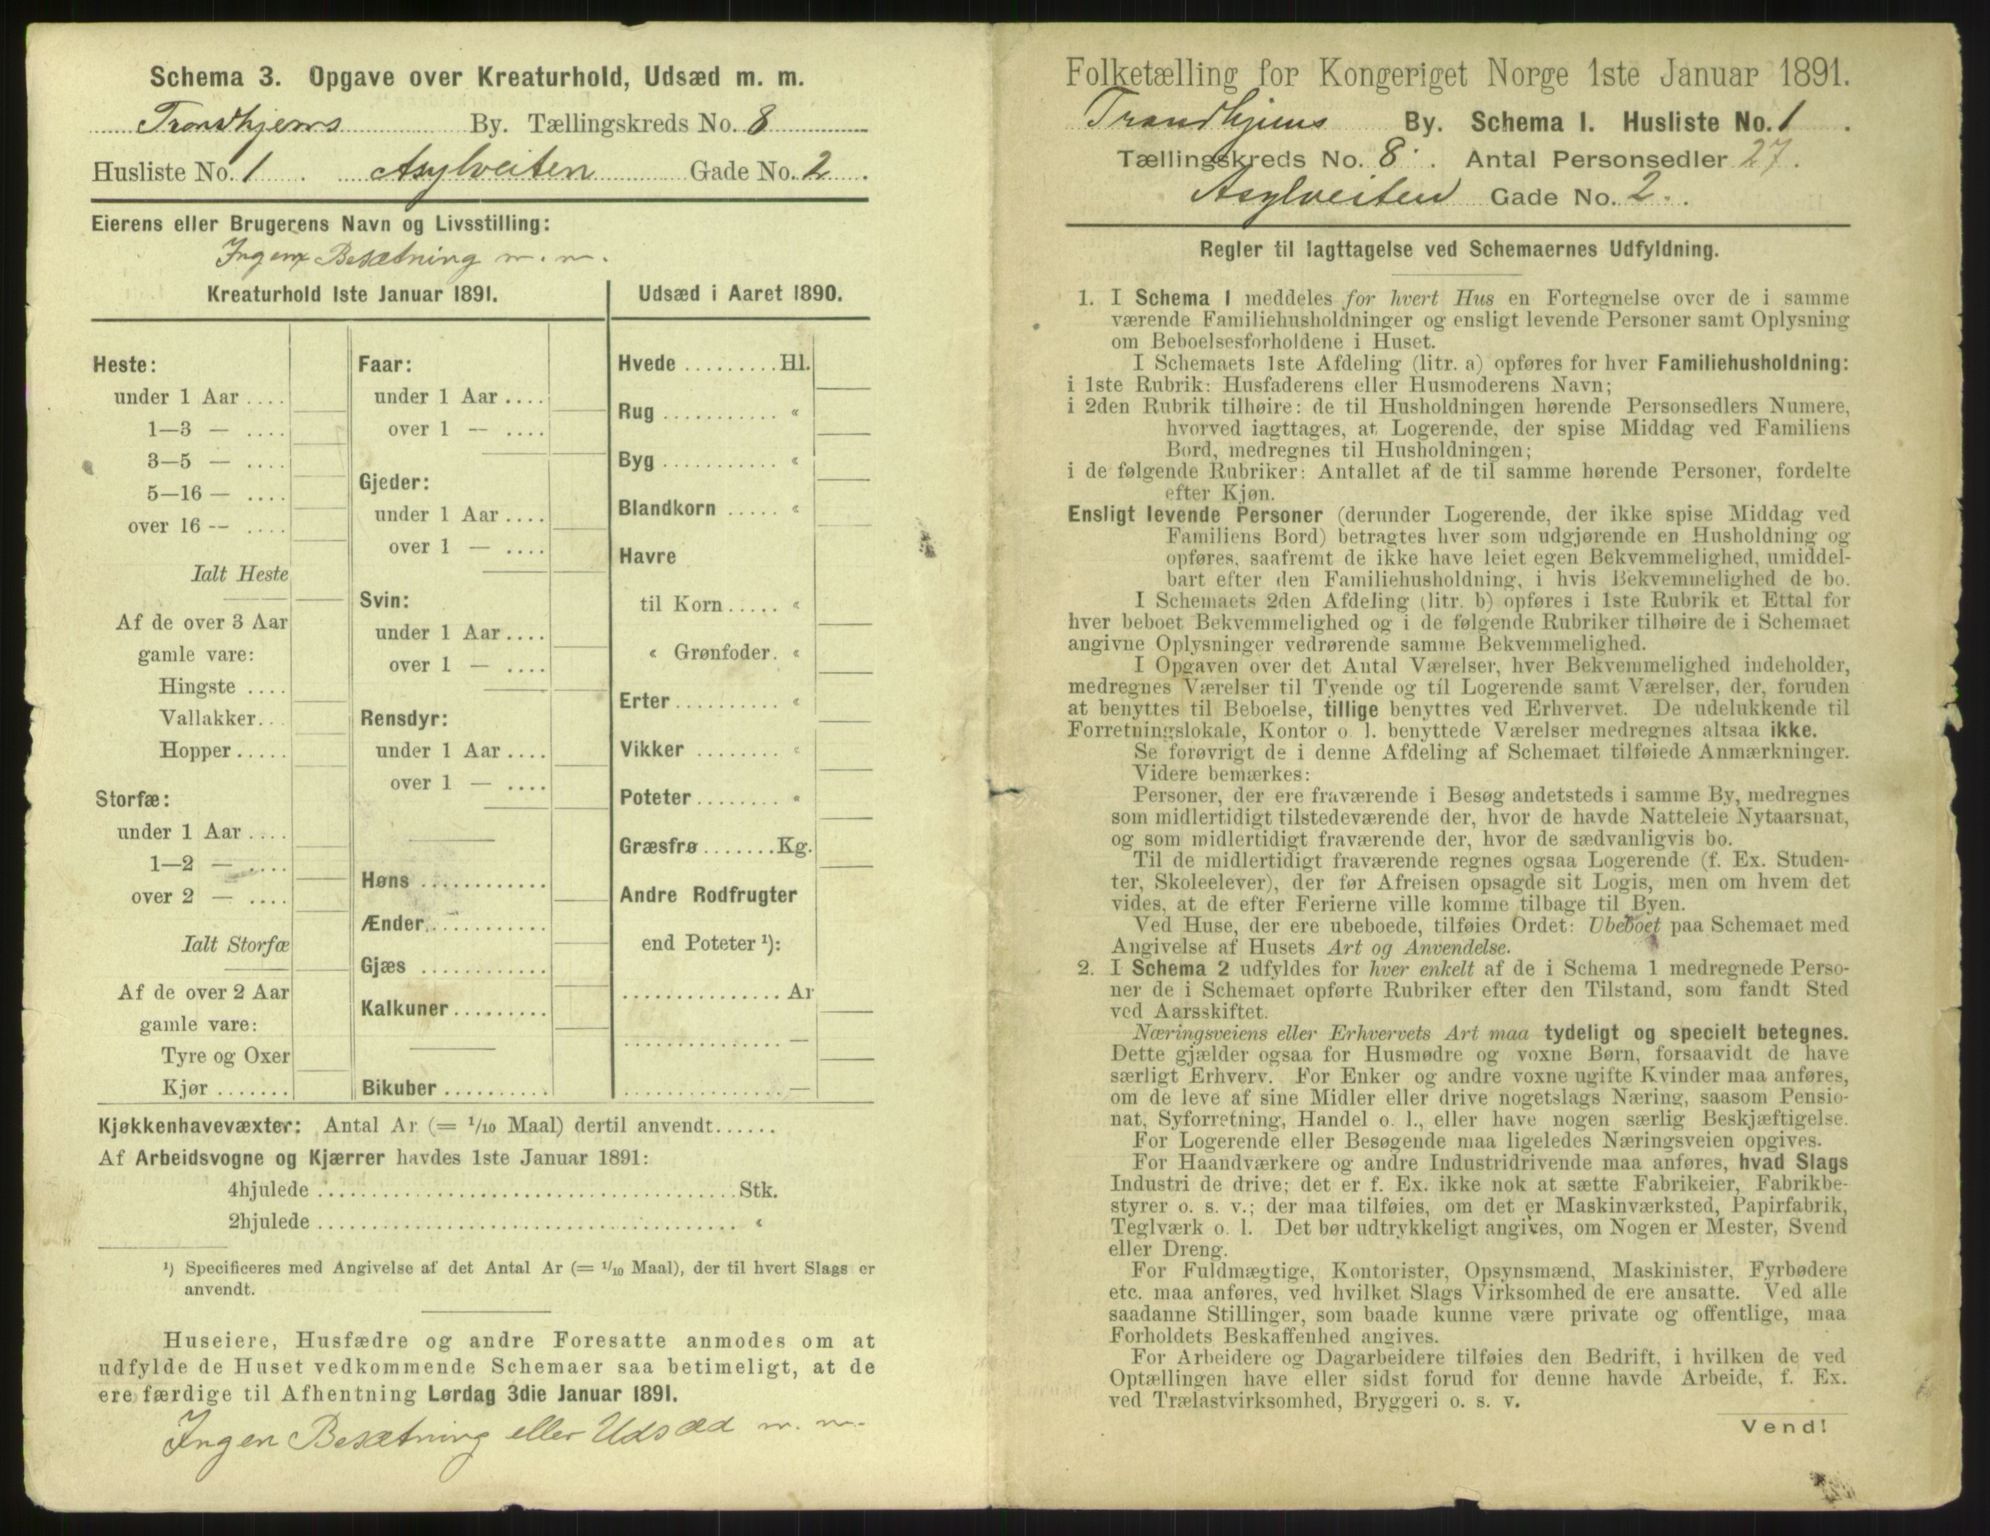 Schema 3. Opgave over Kreaturhold, Udsæd m. m.
Trondhjems By. Tællingskreds No. 8
Husliste No. 1. Asylveiten Gade No. 2.
Eierens eller Brugerens Navn og Livsstilling:
Ingen Besætning m. m.
Kreaturhold 1ste Januar 1891.
Heste:
under 1 Aar ....
1—3 — ....
3—5 — ....
5—16 — ....
over 16 -- ....
Ialt Heste
Af de over 3 Aar
gamle vare:
Hingste ....
Vallakker...
Hopper.....
Storfæ:
under 1 Aar ....
1—2 — ....
over 2 — ....
Ialt Storfæ
Af de over 2 Aar
gamle vare:
Tyre og Oxer
Kjør .......
Faar:
under 1 Aar ....
over 1 — ....
Gjeder:
under 1 Aar ....
over 1 — ....
Svin:
under 1 Aar ....
over 1 — ....
Rensdyr:
under 1 Aar ....
over 1 — ....
Høns ............
Ænder............
Gjæs ............
Kalkuner.........
Bikuber ..........
Udsæd i Aaret 1890.
Hvede .........Hl.
Rug ........... «
Byg ........... «
Blandkorn ..... «
Havre
til Korn ..... «
« Grønfoder. «
Erter.......... «
Vikker ........ «
Poteter ........ «
Græsfrø .......Kg.
Andre Rodfrugter
end Poteter ¹):
............... Ar
............... —
............... —
Kjøkkenhavevæxter: Antal Ar (= 1/10 Maal) dertil anvendt......
Af Arbeidsvogne og Kjærrer havdes 1ste Januar 1891:
4hjulede ........................................ Stk.
2hjulede ........................................ «
¹) Specificeres med Angivelse af det Antal Ar (= 1/10 Maal), der til hvert Slags er
anvendt.
Huseiere, Husfædre og andre Foresatte anmodes om at
udfylde de Huset vedkommende Schemaer saa betimeligt, at de
ere færdige til Afhentning Lørdag 3die Januar 1891.
Ingen Besætning eller Udsæd m. m.
Folketælling for Kongeriget Norge 1ste Januar 1891.
Trondhjems By. Schema I. Husliste No. 1.
Tællingskreds No. 8. Antal Personsedler 27.
Asylveiten Gade No. 2.
Regler til Iagttagelse ved Schemaernes Udfyldning.
1. I Schema I meddeles for hvert Hus en Fortegnelse over de i samme
værende Familiehusholdninger og ensligt levende Personer samt Oplysning
om Beboelsesforholdene i Huset.
I Schemaets 1ste Afdeling (litr. a) opføres for hver Familiehusholdning:
i 1ste Rubrik: Husfaderens eller Husmoderens Navn;
i 2den Rubrik tilhøire: de til Husholdningen hørende Personsedlers Numere,
hvorved iagttages, at Logerende, der spise Middag ved Familiens
Bord, medregnes til Husholdningen;
i de følgende Rubriker: Antallet af de til samme hørende Personer, fordelte
efter Kjøn.
Ensligt levende Personer (derunder Logerende, der ikke spise Middag ved
Familiens Bord) betragtes hver som udgjørende en Husholdning og
opføres, saafremt de ikke have leiet egen Bekvemmelighed, umiddel-
bart efter den Familiehusholdning, i hvis Bekvemmelighed de bo.
I Schemaets 2den Afdeling (litr. b) opføres i 1ste Rubrik et Ettal for
hver beboet Bekvemmelighed og i de følgende Rubriker tilhøire de i Schemaet
angivne Oplysninger vedrørende samme Bekvemmelighed.
I Opgaven over det Antal Værelser, hver Bekvemmelighed indeholder,
medregnes Værelser til Tyende og til Logerende samt Værelser, der, foruden
at benyttes til Beboelse, tillige benyttes ved Erhvervet. De udelukkende til
Forretningslokale, Kontor o l. benyttede Værelser medregnes altsaa ikke.
Se forøvrigt de i denne Afdeling af Schemaet tilføiede Anmærkninger.
Videre bemærkes:
Personer, der ere fraværende i Besøg andetsteds i samme By, medregnes
som midlertidigt tilstedeværende der, hvor de havde Natteleie Nytaarsnat,
og som midlertidigt fraværende der, hvor de sædvanligvis bo.
Til de midlertidigt fraværende regnes ogsaa Logerende (f. Ex. Studen-
ter, Skoleelever), der før Afreisen opsagde sit Logis, men om hvem det
vides, at de efter Ferierne ville komme tilbage til Byen.
Ved Huse, der ere ubeboede, tilføies Ordet: Ubeboet paa Schemaet med
Angivelse af Husets Art og Anvendelse.
2. I Schema 2 udfyldes for hver enkelt af de i Schema 1 medregnede Perso-
ner de i Schemaet opførte Rubriker efter den Tilstand, som fandt Sted
ved Aarsskiftet.
Næringsveiens eller Erhvervets Art maa tydeligt og specielt betegnes.
Dette gjælder ogsaa for Husmødre og voxne Børn, forsaavidt de have
særligt Erhverv. For Enker og andre voxne ugifte Kvinder maa anføres,
om de leve af sine Midler eller drive nogetslags Næring, saasom Pensio-
nat, Syforretning, Handel o. l., eller have nogen særlig Beskjæftigelse.
For Logerende eller Besøgende maa ligeledes Næringsveien opgives.
For Haandværkere og andre Industridrivende maa anføres, hvad Slags
Industri de drive; det er f. Ex. ikke nok at sætte Fabrikeier, Fabrikbe-
styrer o. s. v.; der maa tilføies, om det er Maskinværksted, Papirfabrik,
Teglværk o. l. Det bør udtrykkeligt angives, om Nogen er Mester, Svend
eller Dreng.
For Fuldmægtige, Kontorister, Opsynsmænd, Maskinister, Fyrbødere
etc. maa anføres, ved hvilket Slags Virksomhed de ere ansatte. Ved alle
saadanne Stillinger, som baade kunne være private og offentlige, maa
Forholdets Beskaffenhed angives.
For Arbeidere og Dagarbeidere tilføies den Bedrift, i hvilken de ved
Optællingen have eller sidst forud for denne havde Arbeide, f. Ex.
ved Trælastvirksomhed, Bryggeri o. s. v.
Vend!